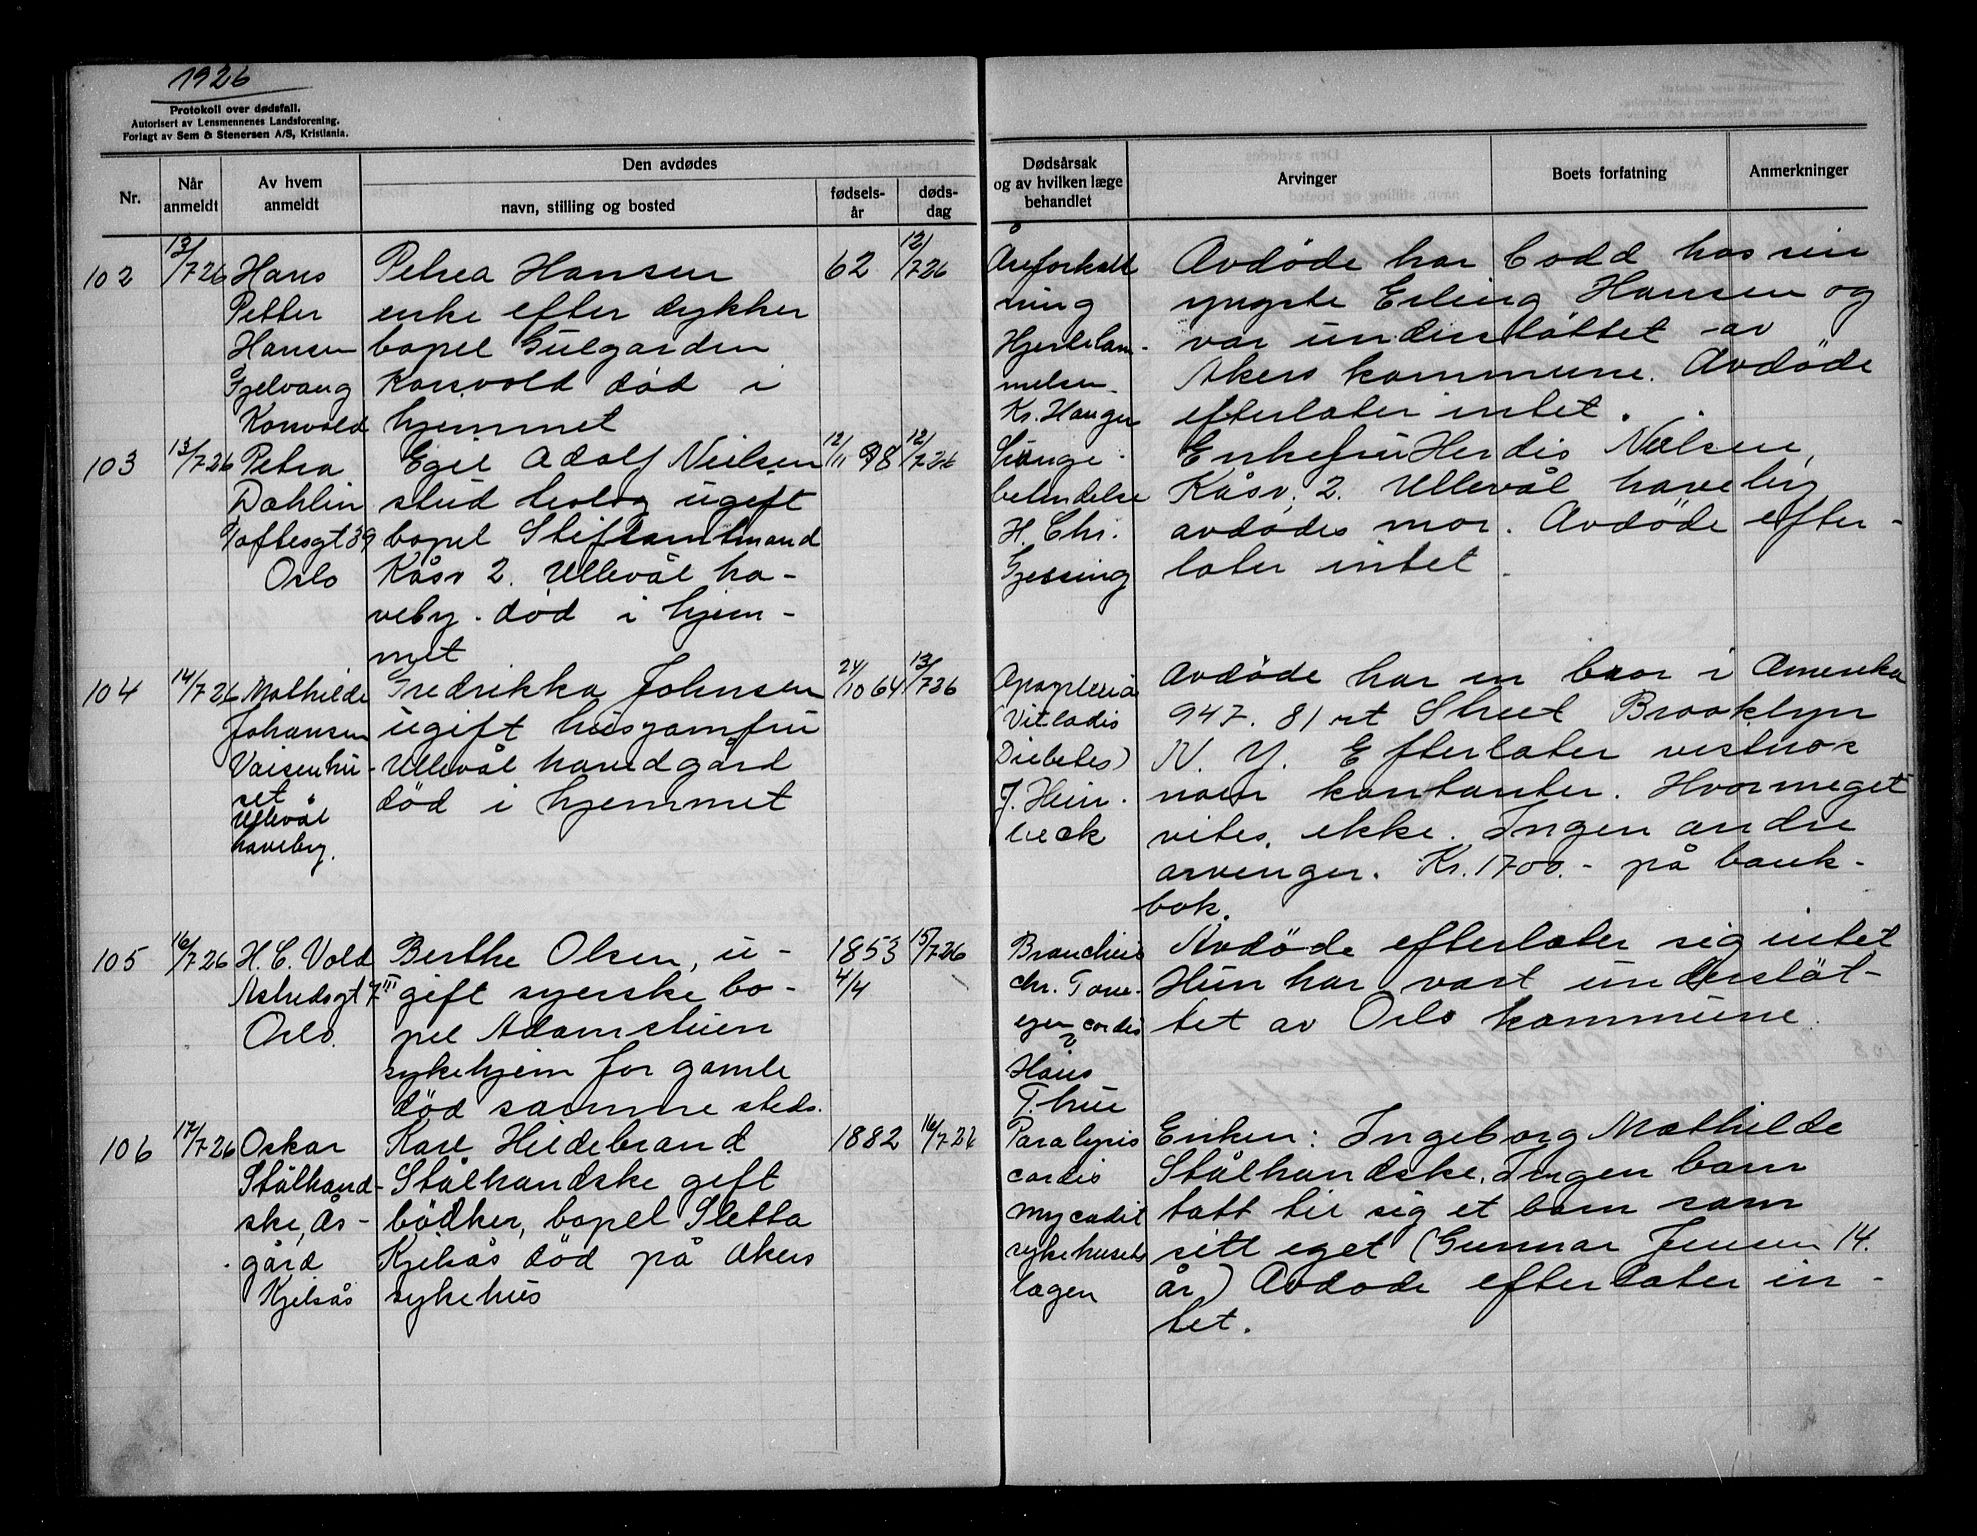 1926
Protokoll over dødsfall.
Autorisert av Lensmennenes Landsforening.
Forlagt av Sem & Stenersen A/S, Kristiania.
Nr.
Når anmeldt
Av hvem anmeldt
Den avdødes
navn, stilling og bosted
fødselsår
dødsdag
Dødsårsak og av hvilken læge behandlet
Arvinger
Boets forfatning
Anmerkninger
102
13/7 26
Hans
Petter
Hansen
Gjelvang
Korsvold
Petrea Hansen
enke efter dykker
bopel Gulgården
Korsvold død i
hjemmet
62
12/7 26
Åreforkalk
ning
Hjertelam-
melsen
Kr. Hauger
Avdøde har bodd hos sin
yngste Erling Hansen og
var understøttet av
Akers kommune. Avdøde
efterlater intet.
103
13/7 26
Petra
Dahlin
Toftesgt 39
Oslo
Egil Adolf Nielsen
stud teolog ugift
bopel Stiftamtmand
Kåsv 2. Ullevål ha-
veby. død i hjem-
met
12/11 98
12/7 26
Lunge-
betendelse
H. Chr.
Gjessing
Enkefru Herdis Nielsen,
Kåsv. 2. Ullevål haveby
avdødes mor. Avdøde efter-
later intet.
104
14/7 26
Mathilde
Johansen
Vaisenhu-
set
Ullevål
haveby.
Fredrikka Johnsen
ugift husjomfru
Ullevål hovedgård
død i hjemmet
24/10 64
13/7 26
Apoplexia
(Vitiadis
Diebetes)
J. Heim-
beck
Avdøde har en bror i Amerika
947. 81 st Street Brooklyn
N. Y. Efterlater vistnok
noen kontanter. Hvormeget
vites ikke. Ingen andre
arvenger. Kr. 1700.- på bank-
bok.
105
16/7 26
H. C. Vold
Astridsgt 7 III
Oslo.
Berthe Olsen, u-
gift syerske bo-
pel Adamstuen
sykehjem for gamle
død samme steds.
1853
4/4
15/7 26
chr.
cordis
Hans
Thue
Avdøde efterlater sig intet
Hun har vært understøt-
tet av Oslo kommune.
106
17/7 26
Oskar
Stålhand-
ske, Ås-
gård
Kjelsås
Karl Hildebrand
Stålhandske gift
bødker, bopel Sletta
Kjelsås død på Akers
sykehus
1882
16/7 26
Paralysis
cordis
Mycadit
sykehusets
lægen
Enken: Ingeborg Mathilde
Stålhandske. Ingen barn
tatt til sig et barn som
sitt eget (Gunnar Jensen 14.
år) Avdøde efterlater in-
tet.